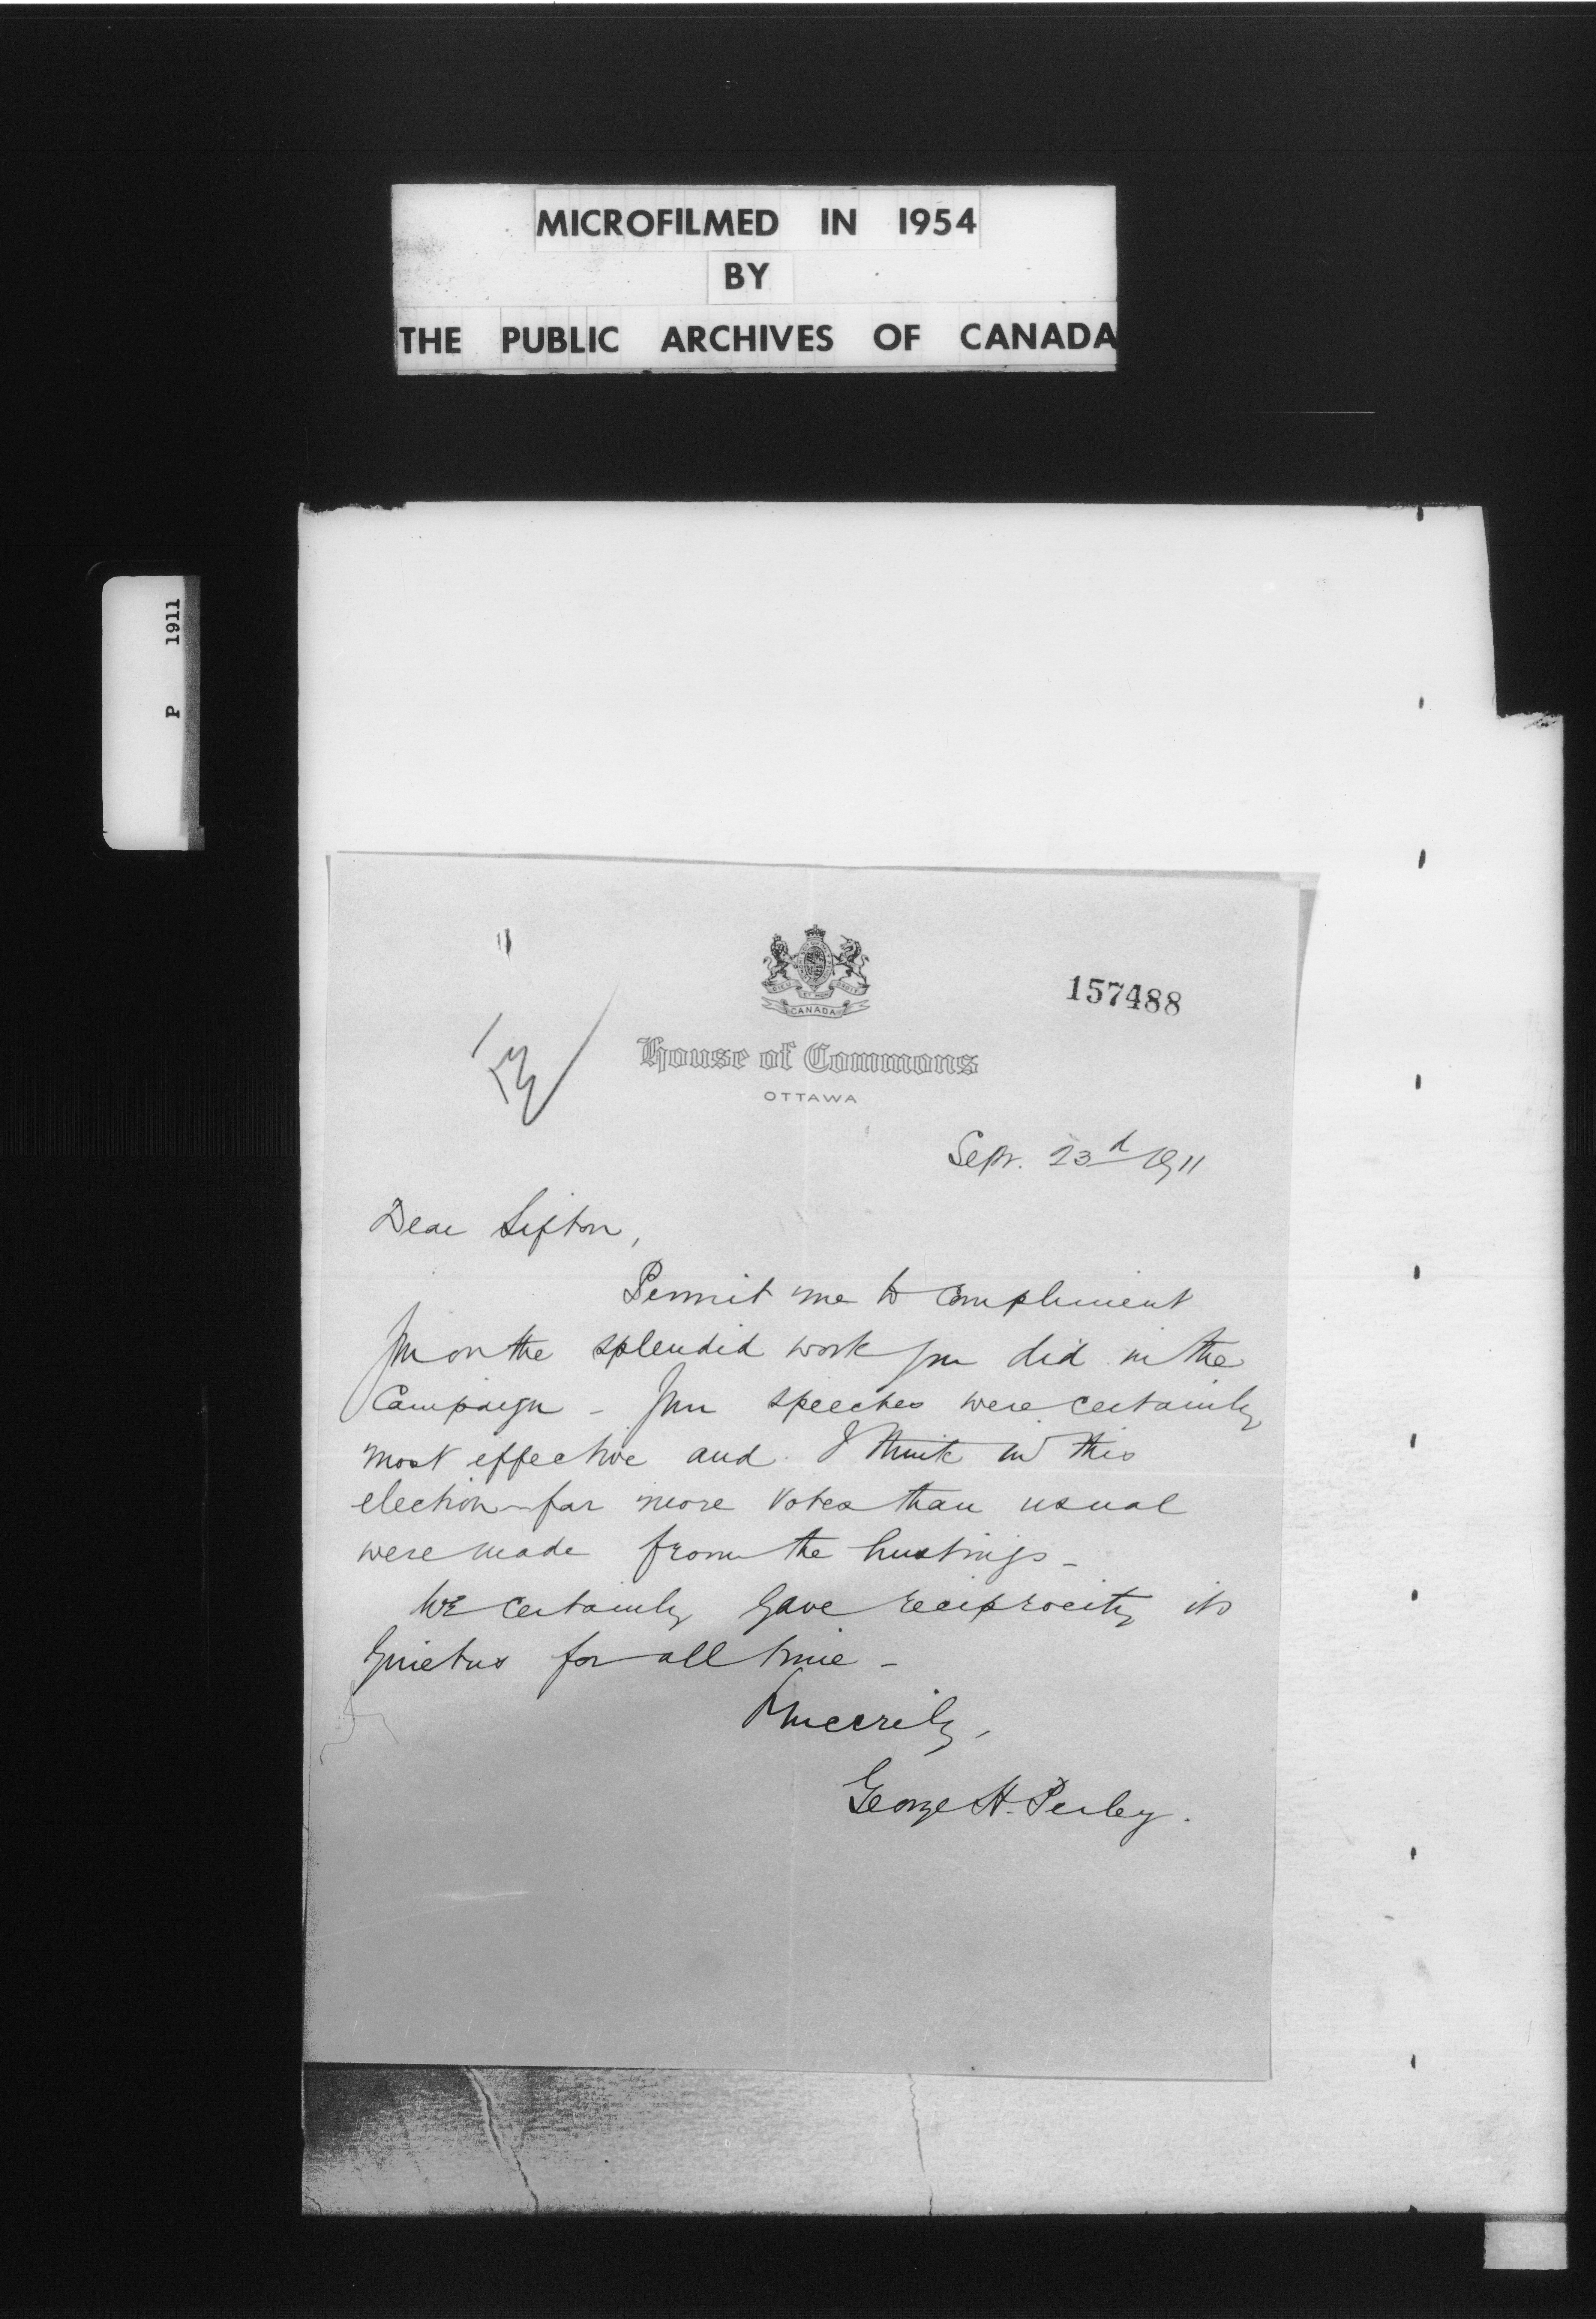 MICROFILMED IN 1954
BY
THE PUBLIC ARCHIVES OF CANADA
P 1911
CANADA
157488
House of Commons
OTTAWA
Sept. 23d 1911
Dear Sifton,
Permit me to compliment
you on the splendid work you did in the
Campaign - Your speeches were certainly
most effective and I think in this
election far more votes than usual
were made from the hustings -
We certainly gave reciprocity its
quietus for all time -
Sincerely,
George H. Perley.